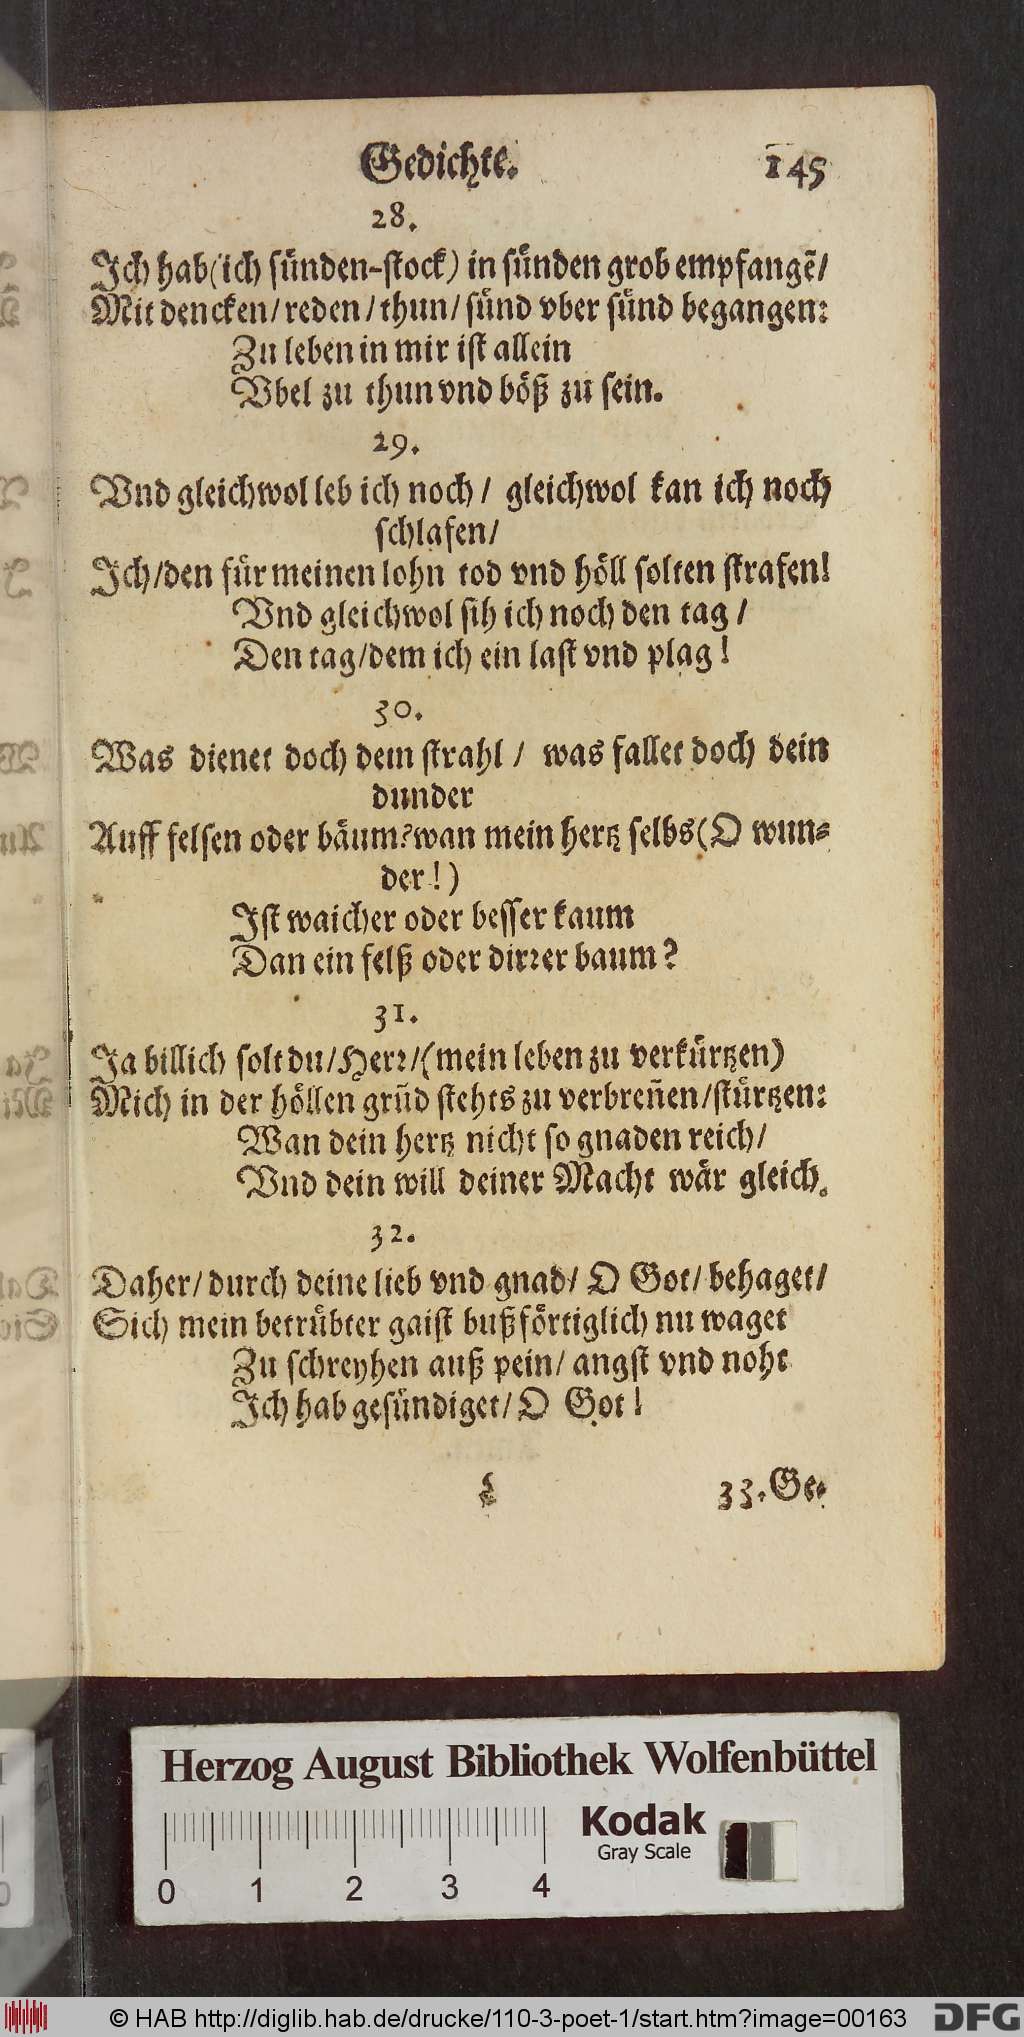 Gedichte. 145
28.
Ich hab (ich sünden-stock) in sünden grob empfangẽ/
Mit dencken/ reden/ thun/ sünd vber sünd begangen:
Zu leben in mir ist allein
Vbel zu thun vnd böß zu sein.
29.
Vnd gleichwol leb ich noch/ gleichwol kan ich noch
schlafen/
Ich/ den für meinen lohn tod vnd höll solten strafen!
Vnd gleichwol sih ich noch den tag/
Den tag/ dem ich ein last vnd plag!
30.
Was dienet doch dem strahl/ was fallet doch dein
dunder
Auff felsen oder bäum? wan mein hertz selbs (O wun-
der!)
Ist waicher oder besser kaum
Dan ein felß oder dirrer baum?
31.
Ja billich solt du/ Herr/ (mein leben zu verkürtzen)
Mich in der höllen grũd stehts zu verbreñen/ stürtzen:
Wan dein hertz nicht so gnaden reich/
Vnd dein will deiner Macht wär gleich.
32.
Daher/ durch deine lieb vnd gnad/ O Got/ behaget/
Sich mein betrübter gaist bußförtiglich nu waget
Zu schreyhen auß pein/ angst vnd noht
Ich hab gesündiget/ O Got!
33. Ge-
Herzog August Bibliothek Wolfenbüttel
Kodak
Gray Scale
0 1 2 3 4
© HAB http://diglib.hab.de/drucke/110-3-poet-1/start.htm?image=00163 DFG